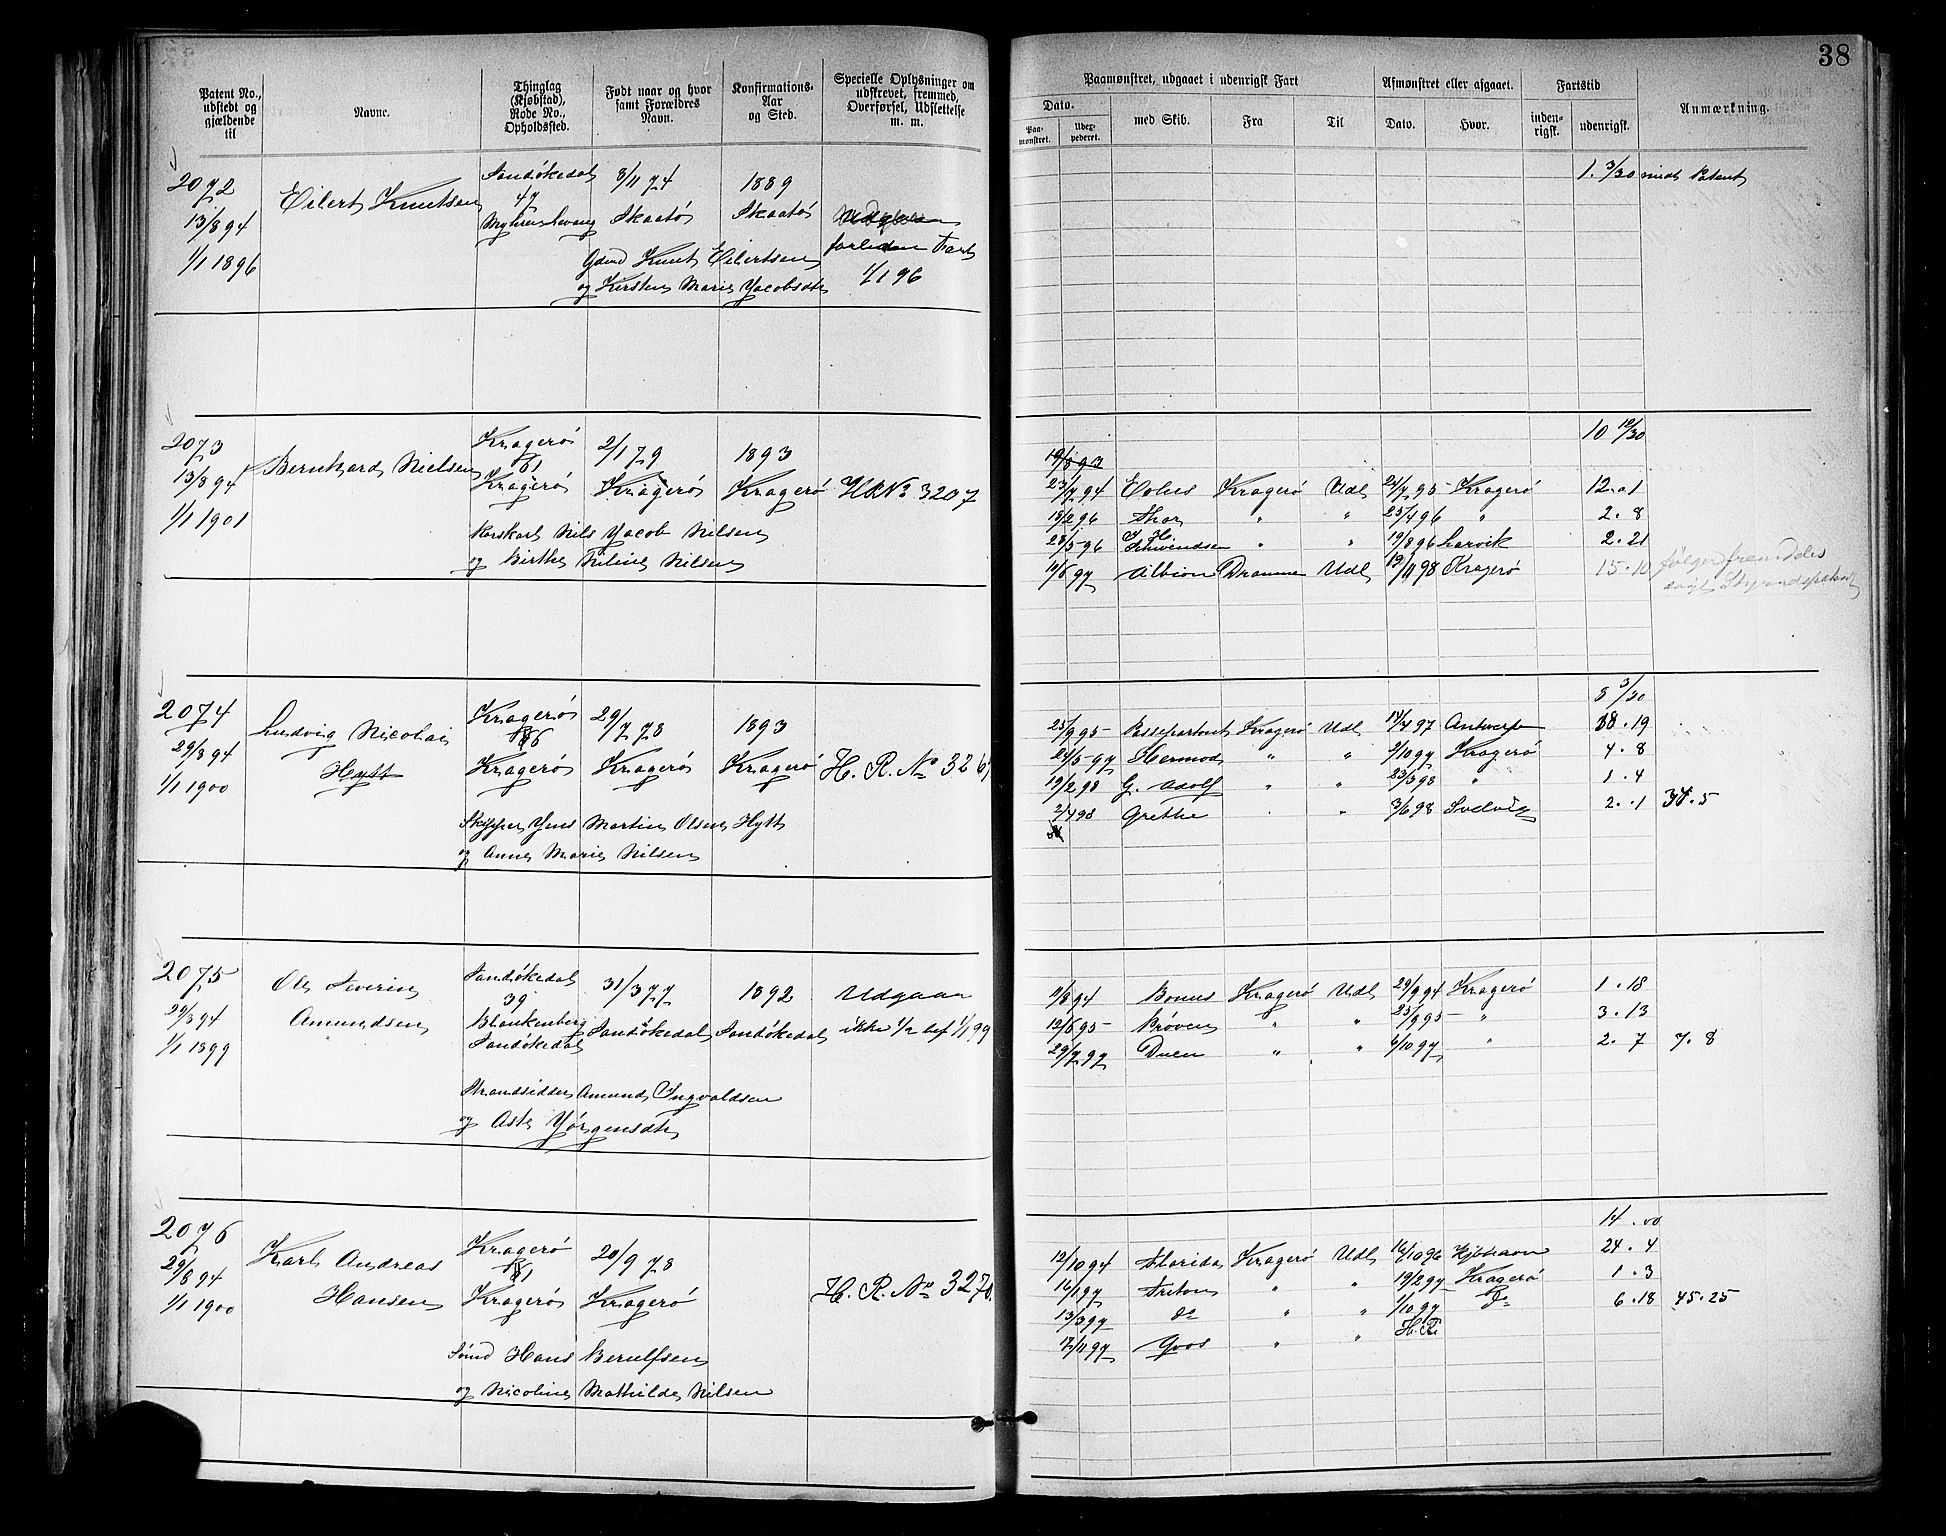 38
Patent No., udstedt og gjældende til
Navne.
Thinglag (Kjøbstad), Rode No., Opholdssted.
Født naar og hvor samt Forældres Navn.
Konfirmations-Aar og Sted.
Specielle Oplysninger om udskrevet, fremmed, Overførsel, Udslettelse m. m.
Paamønstret, udgaaet i udenrigsk Fart
Dato.
Paa-mønstret.
Udex-pederet.
med Skib.
Fra
Til
Afmønstret eller afgaaet.
Dato.
Hvor.
Fartstid
inden-rigsk.
udenrigsk.
Anmærkning.
2072 Eilert Knutsen Sandökedal 8/11 74 1889 1. 3/30 med Patent
13/8 94 47 Skaatö Skaatö
1/1 1896 Gdmd Knut Eilertsen forliden Fart
og Kirsten Marie Jacobsdtr 1/1 96
2073 Bernhard Nielsen Kragerö 2/1 79 1893 10 19/30
13/8 94 61 Kragerö Kragerö Kragerö HR No 3207
1/1 1901
Nils Jacob Nilsen
og Birthe Nilsen
19/8 93
23/7 94 Eolus Kragerö Udl 24/7 95 Kragerö 12.01
18/2 96 Thor " " 25/4 96 " 2.8
28/5 96 " " 19/8 96 Larvik 2.21
11/6 97 Albion Dramme Udl 19/11 98 Kragerö 15.10
2074 Ludvig Nicolai Hytt Kragerö 29/7 78 1893 8 3/30
29/8 94 Kragerö Kragerö Kragerö H. R. No 326
1/1 1900
Skipper Jens Martin Olsen Hytt
og Anne Marie Nilsen
25/9 95 Passepartout Kragerö Udl 14/4 97 Antwerp 18.19
24/5 97 Hermod " " 2/10 97 Kragerö 4.8
19/2 98 G. Adolf " " 23/3 98 " 1.4
2/4 98 Grethe " " 3/6 98 Svelvig 2.1 34.5
2075 Ole Severin Amundsen Sandökedal 31/3 77 1892 Udgaar
29/8 94 39 Blankenberg Sandökedal Sandökedal Sandökedal ikke 1/2 bef 1/1 99
1/1 1899
Strandsidder Amund Ingvaldsen
og Aste Jörgensdtr
11/8 94 Bonus Kragerö Udl 29/9 94 Kragerö 1.18
12/6 95 Pröven " " 25/9 95 " 3.13
29/7 97 Duen " " 6/10 97 " 2.7 7.8
2076 Karl Andreas Hansen Kragerö 20/9 78 14.00
29/8 94 Kragerö Kragerö H. R. No 3270
1/1 1900
Sömd Hans Berulfsen
og Nicoline Mathilde Nilsen
12/10 94 Florida Kragerö Udl 16/10 96 Kjöbhavn 24.4
16/1 97 Triton " " 19/2 97 Kragerö 1.3
13/3 97 do " " 1/10 97 do 6.18 45.25
17/11 97 " " H. R.